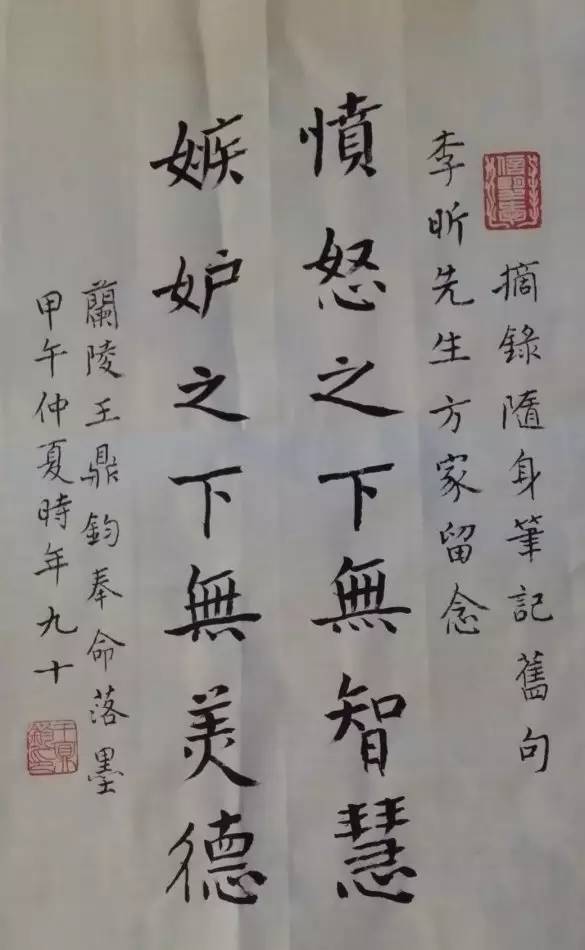 摘錄隨身筆記舊句
李昕先生方家留念
憤怒之下無智慧
嫉妒之下無美德
蘭陵王鼎鈞奉命落墨
甲午仲夏時年九十